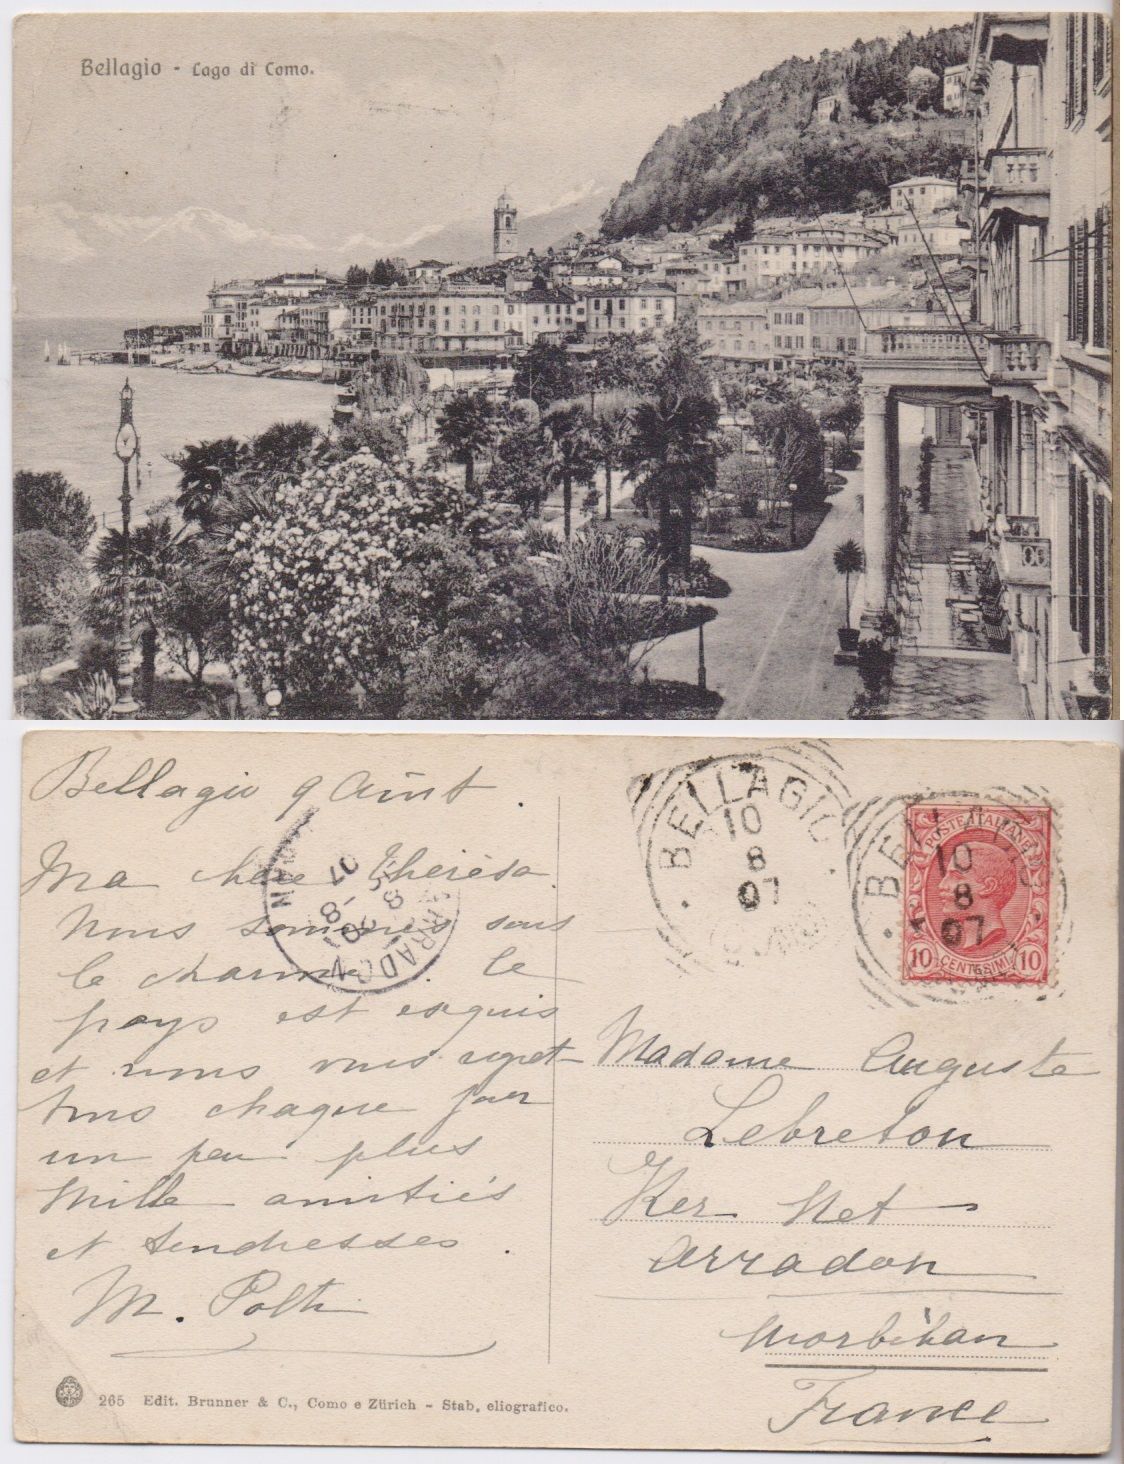 Bellagio - Lago di Como.
Bellagio 9 Août.
Ma chère Thérèsa
Nous sommes sous
le charme. le
pays est exquis
et nous vous regret-
tons chaque jour
un peu plus
Mille amitiés
et tendresses.
M. Polti
265 Edit. Brunner & C., Como e Zürich - Stab. eliografico.
ARRADON
8 30
10-8
07
BELLAGIO
10
8
07
BELLAGIO
10
8
07
POSTE ITALIANE
10 CENTESIMI 10
Madame Auguste
Lebreton
Ker Net
Arradon
Morbihan
France